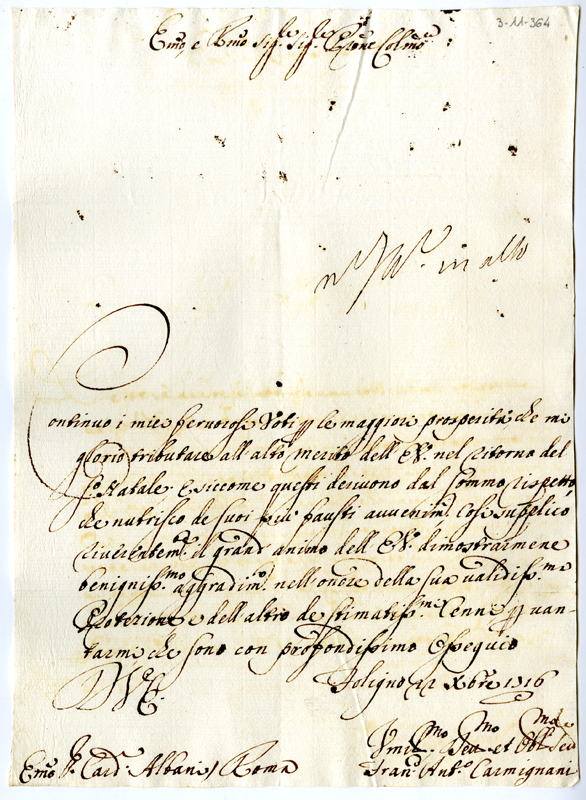 3-11-364
Emo, e Rmo Sigre Sigre Pròne Colmo
in alto
Continuo i miei fervorosi Voti p le maggiori prosperità che mi
glorio tributare all'alto merito dell'E.V. nel ritorno del
Sto Natale. E siccome questi derivono dal sommo rispetto,
che nutrisco de suoi più fausti avvenimti. Così supplico
riverentemte. il grand'animo dell'E.V. dimostrarmene
benigniss.mo aggradimo. nell'onore della sua validiss.ma
Protezione e dell'altro de stimatiss.mi Cenni p van-
tarmi che sono con profondissimo Ossequio
D.V.E.
Foligno 12 Xbre 1716
Umil.mo Dev.mo et Obl. Sed
Emo Sr Card. Albani / Roma
Fran. Anto. Carmignani